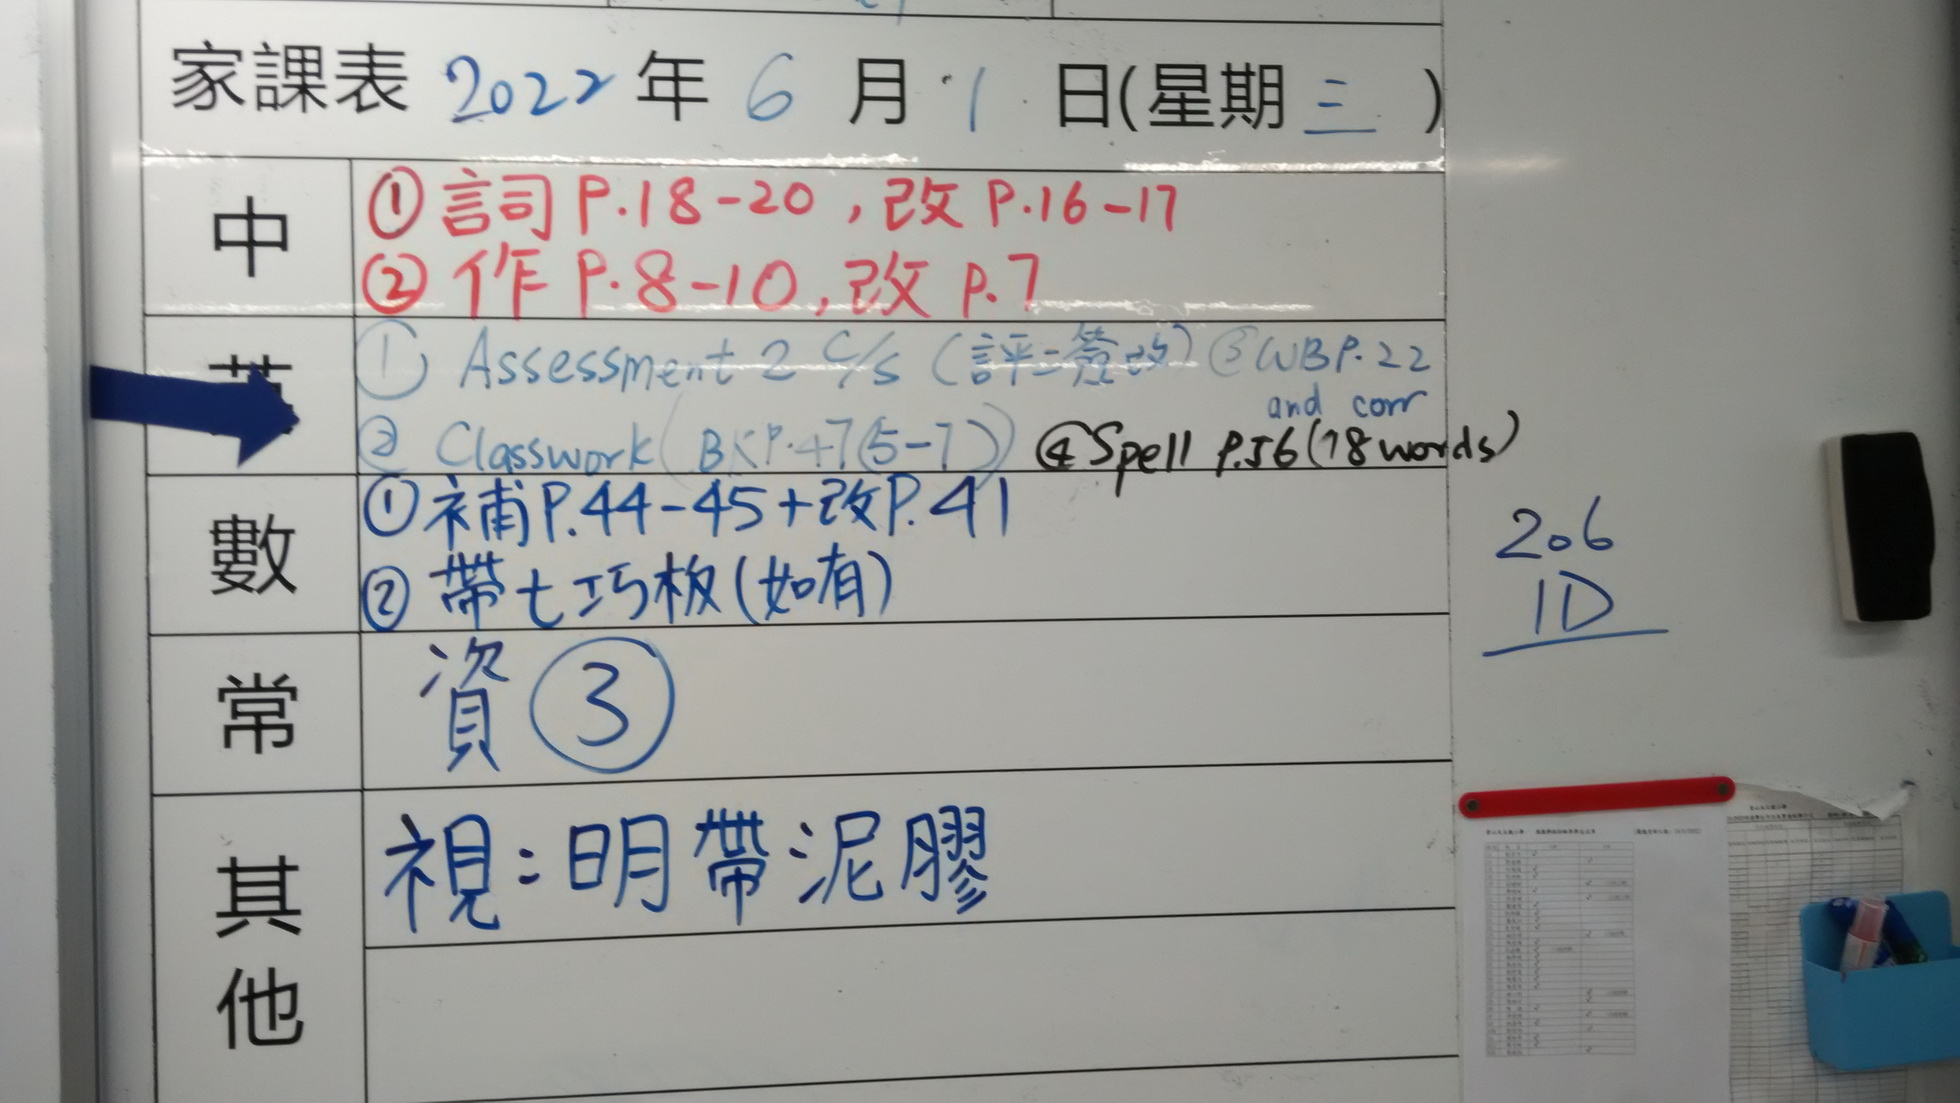 家課表 2022 年 6 月 1 日(星期 三 )
中
① 詞 P.18-20 , 改 P.16-17
② 作 P.8-10, 改 P.7
英
① Assessment 2 c/s (評二簽改) ③ WB P.22
and corr
② Classwork (BK P.47(5-7)) ④ Spell P.56 (18 words)
數
① 補 P.44-45+改P.41
② 帶七巧板(如有)
常
資 ③
其他
視:明帶泥膠
2.6
1D